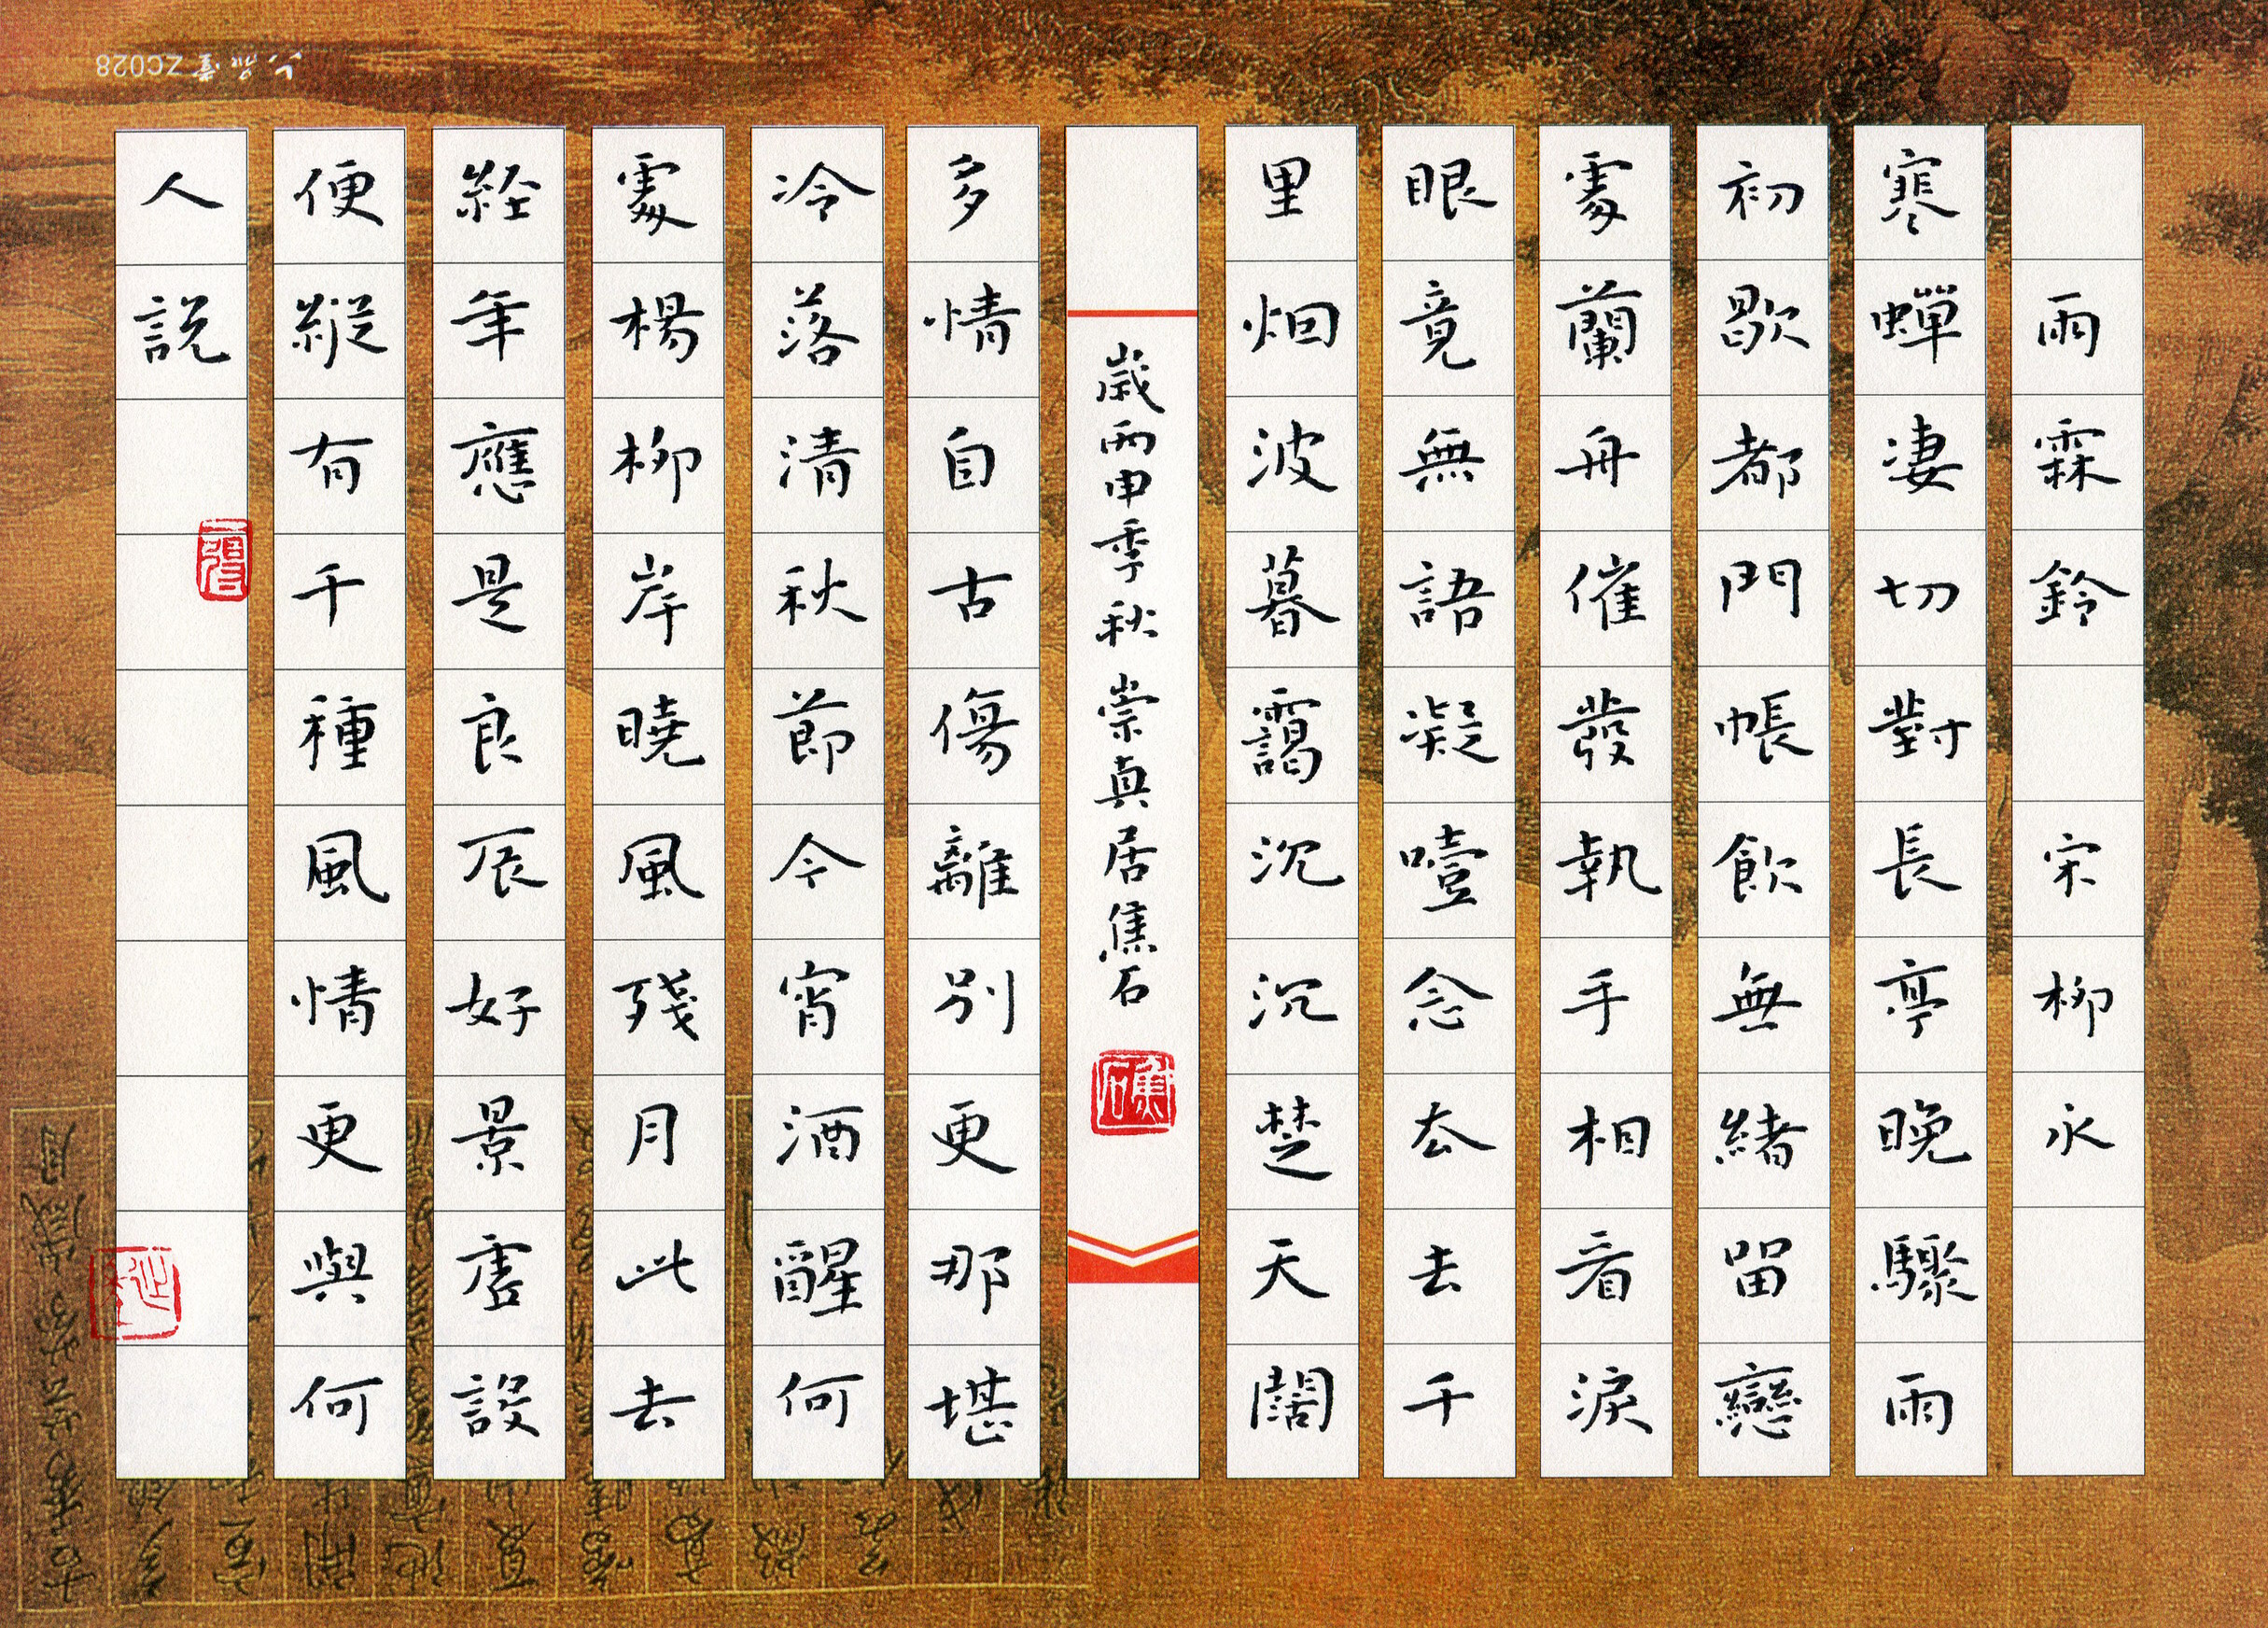 雨霖鈴 宋柳永
寒蟬凄切對長亭晚驟雨
初歇都門帳飲無緒留戀
處蘭舟催發執手相看淚
眼竟無語凝噎念厺去千
里烟波暮靄沉沉楚天闊
歲丙申季秋 崇真居焦石
多情自古傷離別更那堪
冷落清秋節今宵酒醒何
處楊柳岸曉風殘月此去
經年應是良辰好景虛設
便縱有千種風情更與何
人説
ZC028